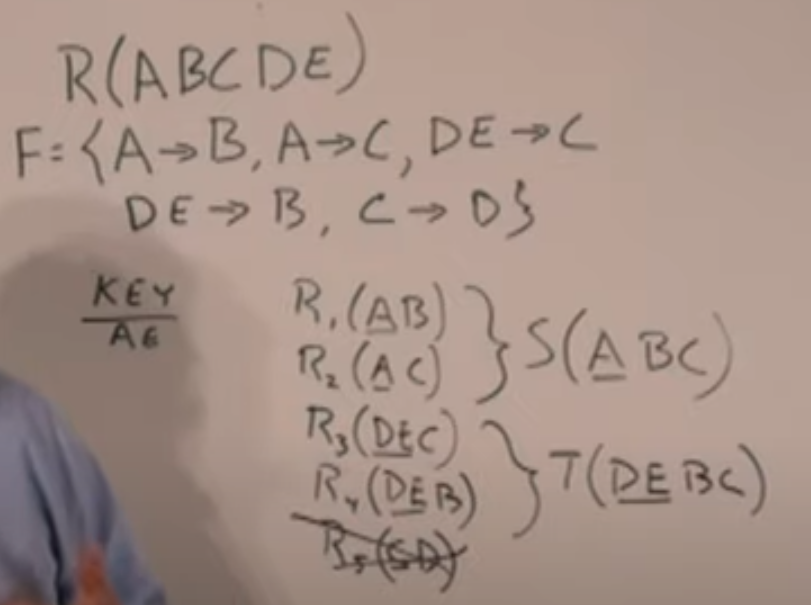 R(ABCDE)
F={A→B, A→C, DE→C
DE→B, C→D}
KEY
AE
R₁(AB)
R₂(AC)
} S(ABC)
R₃(DEC)
R₄(DEB)
} T(DEBC)
R₅(CD)